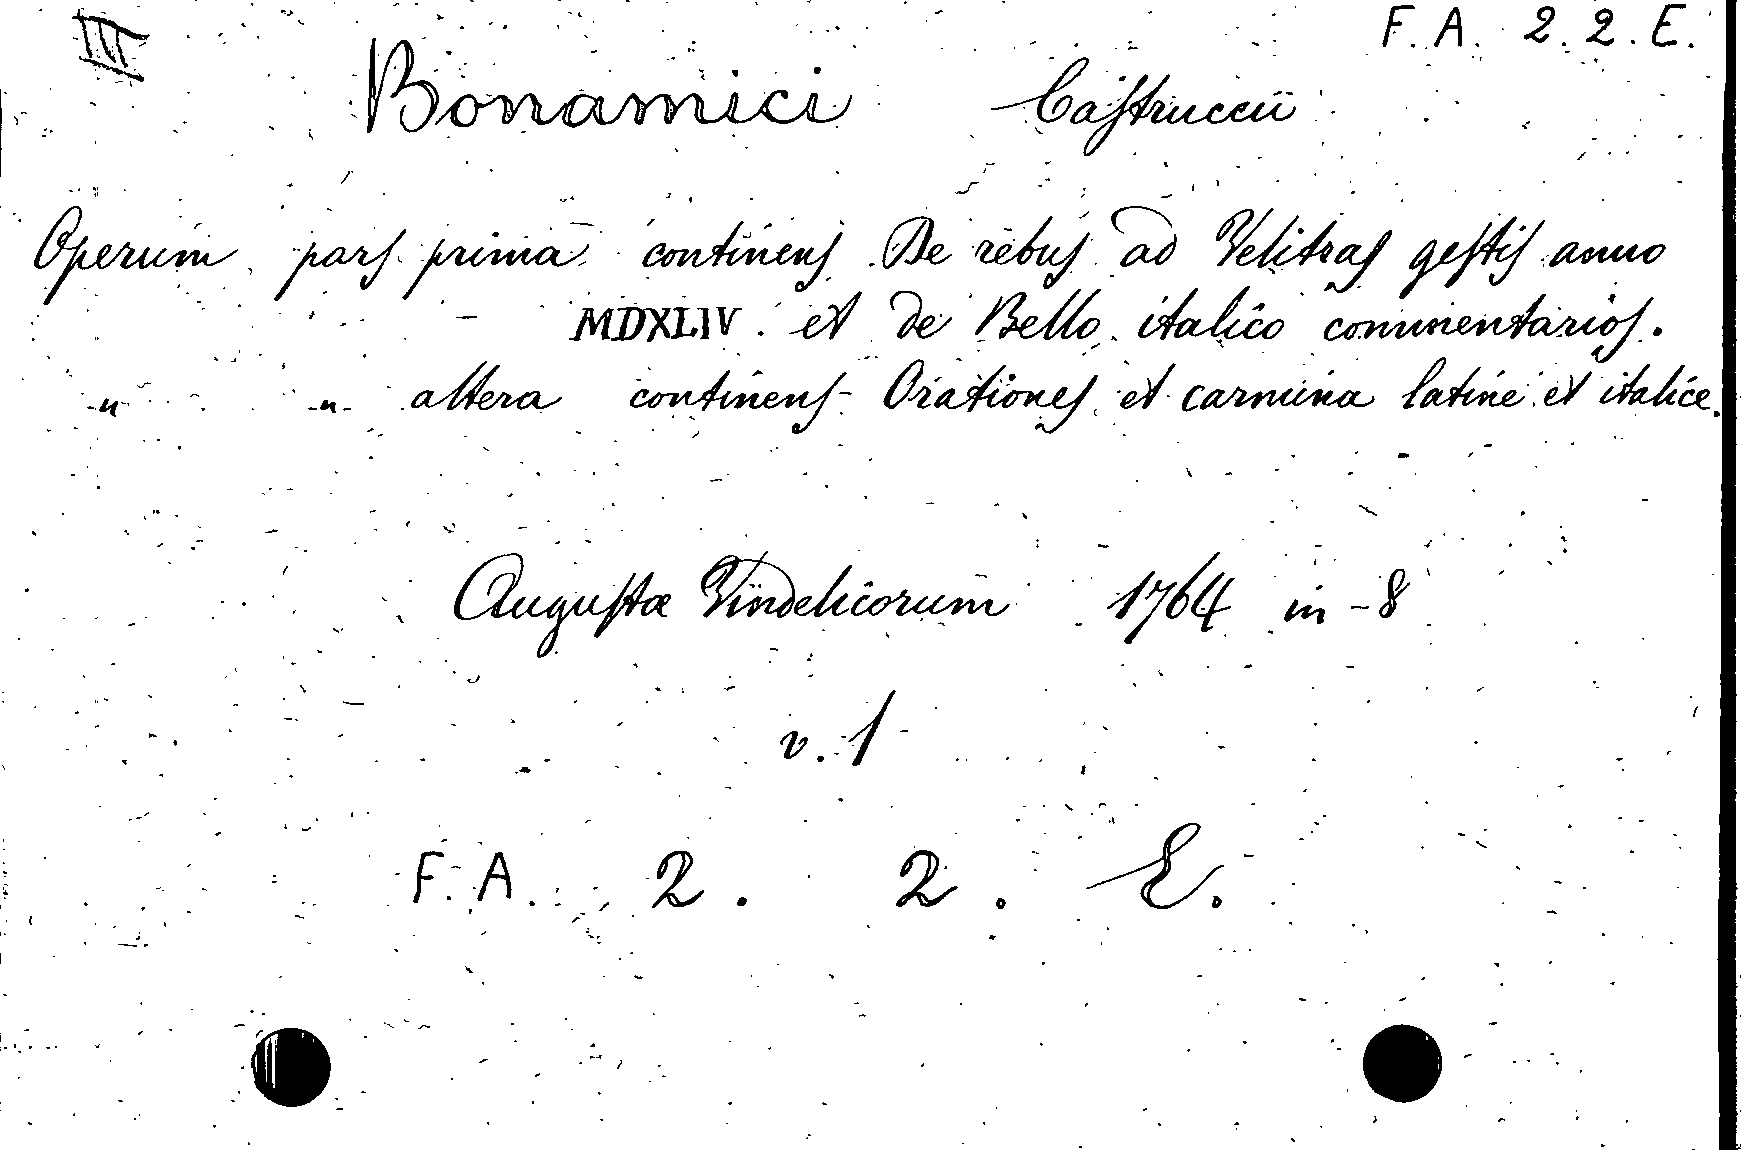 III F. A. 2. 2. E.
Bonamici Castruccii
Operum pars prima continens De rebus ad Velitras gestis anno
MDXLIV. et de Bello italico commentarios.
" " altera continens Orationes et carmina latine et italice.
Augustæ Vindelicorum 1764 in-8
v. 1
F. A. 2. 2. E.